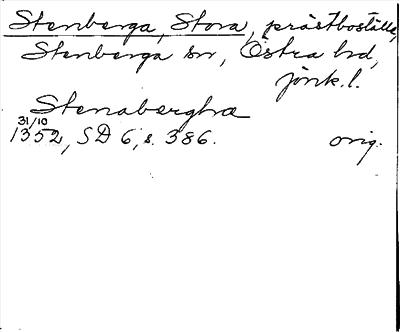 Stenberga, Stora, prästboställe,
Stenberga sn, Östra hd,
Jönk. l.
Stenaberghæ
31/10
1352, SD 6, s. 386. orig.